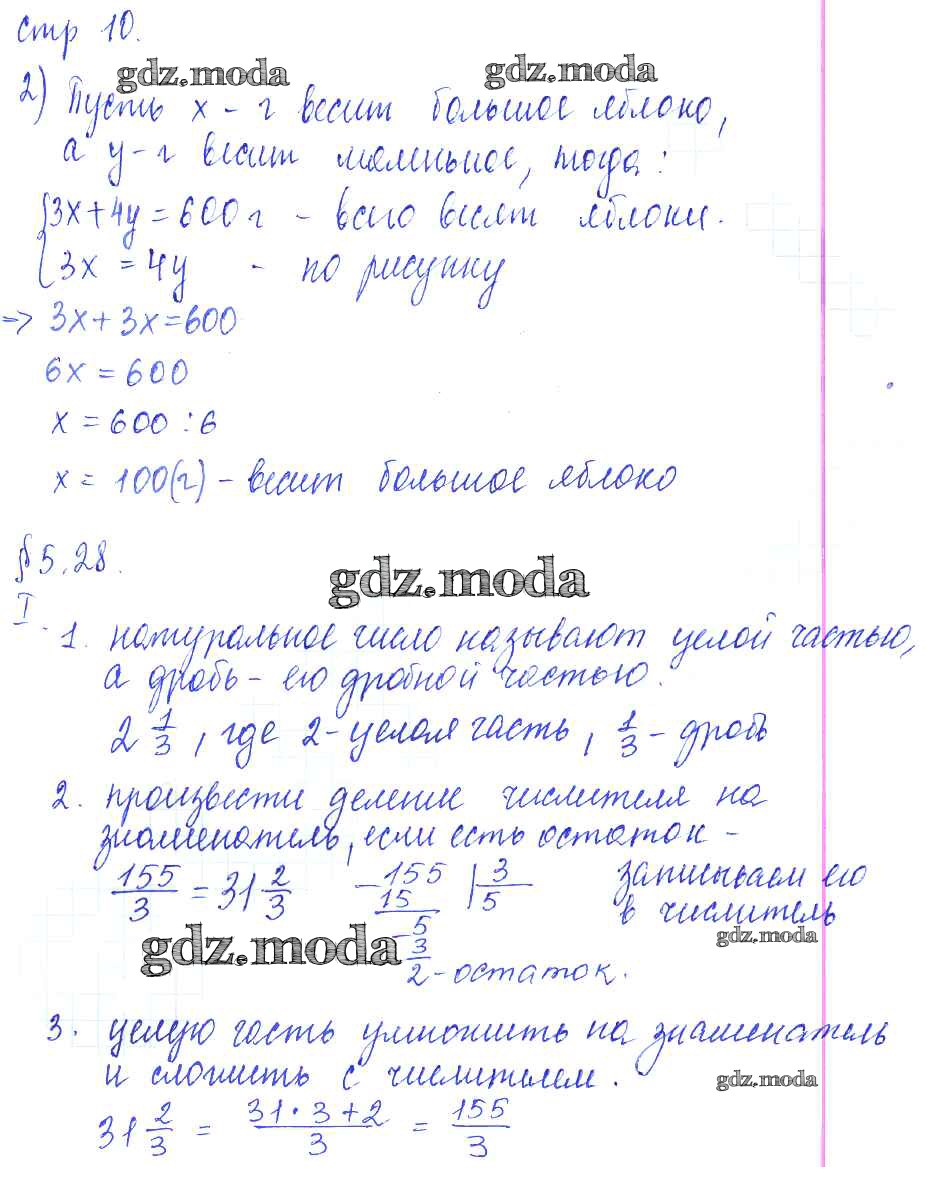 стр 10.
gdz.moda gdz.moda
2) Пусть x - г весит большое яблоко,
а y - г весит маленькое, тогда:
{3x + 4y = 600 г - всего весят яблоки.
{3x = 4y - по рисунку
=> 3x + 3x = 600
6x = 600
x = 600 : 6
x = 100(г) - весит большое яблоко
§ 5.28.
gdz.moda
I.
1. натуральное число называют целой частью,
а дробь - его дробной частью.
2 1/3, где 2 - целая часть, 1/3 - дробь
2. произвести деление числителя на
знаменатель, если есть остаток -
155/3 = 31 2/3 -155 | 3 записываем его
15 5 в числитель
gdz.moda -5 gdz.moda
3
2 - остаток.
3. целую часть умножить на знаменатель
и сложить с числителем. gdz.moda
31 2/3 = 31 · 3 + 2/3 = 155/3